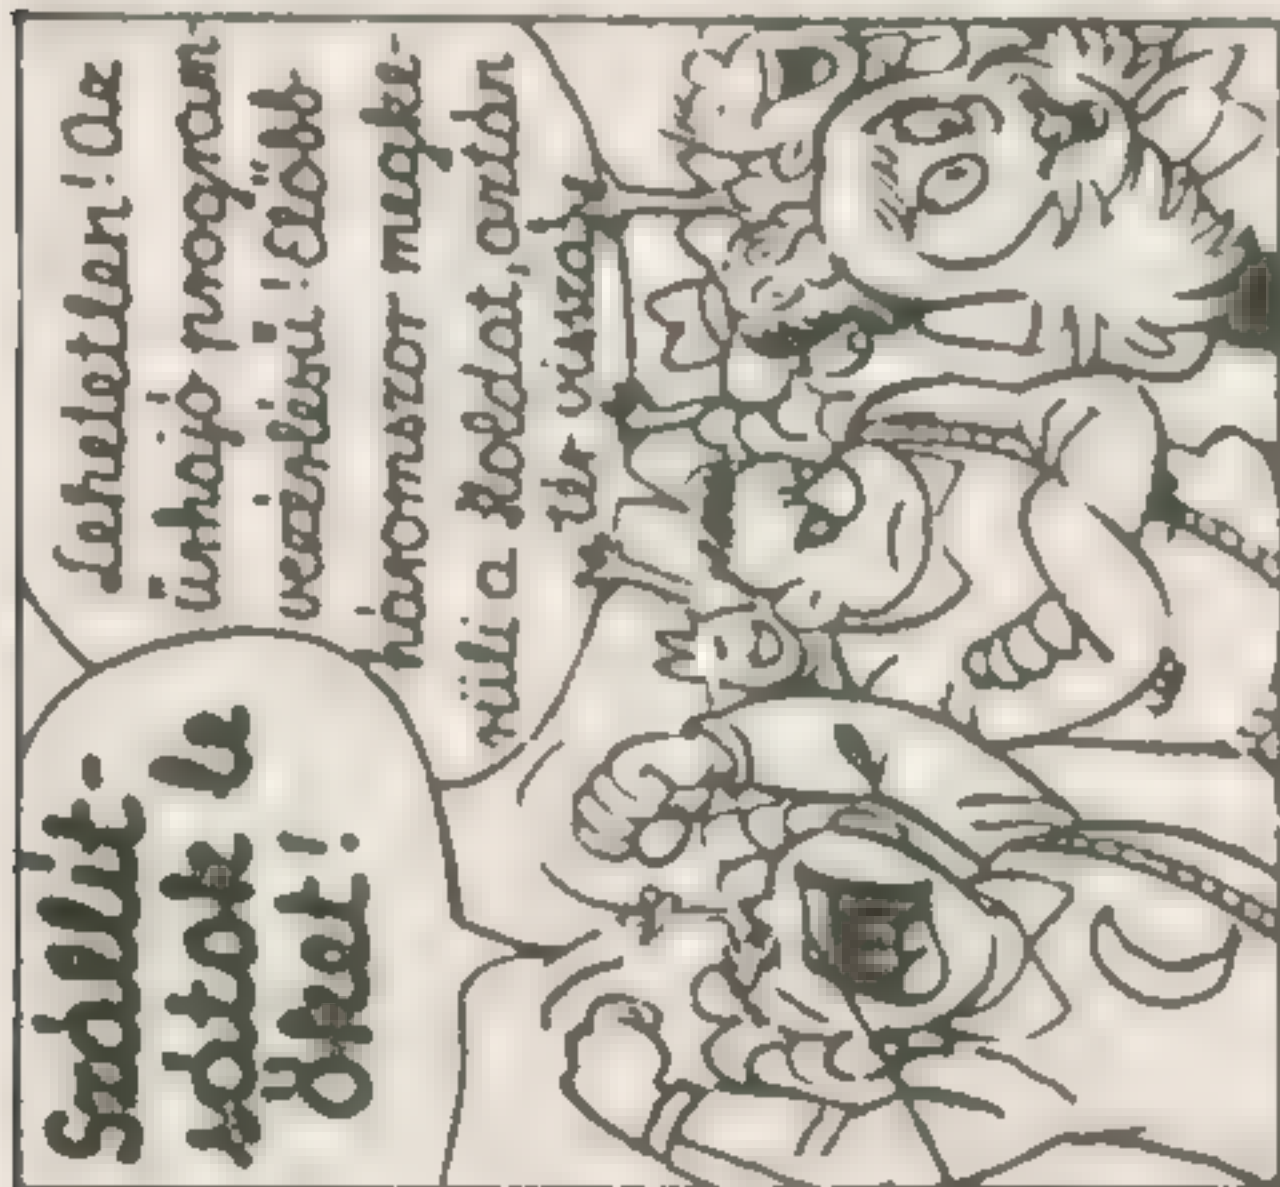 Szállít-
sátok le
őket!
Lehetetlen! Az
űrhajó program-
vezérlésű! Előbb
háromszor megke-
rüli a Holdat, aztán
tér vissza!